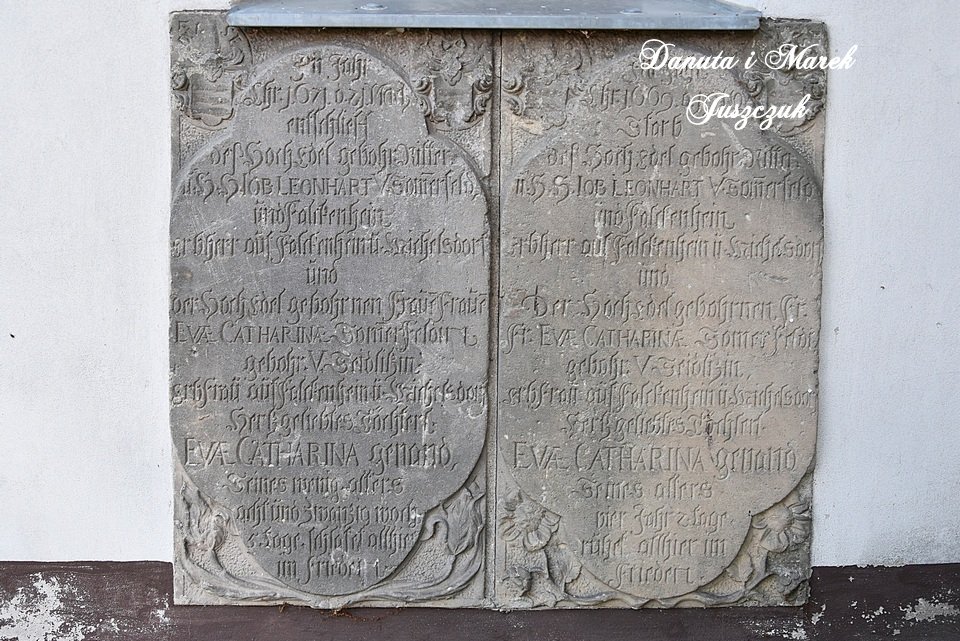 Danuta i Marek
Juszczuk
Im Jahr
Chr. 1671. d. 21.
entschlieff
deß Hoch Edel gebohr. Ritter
u. H. H. IOB LEONHART V. Som̄erfeld
und Falckenhein
Erbherr auf Falckenhein u. Michelsdorf
und
der Hoch Edel gebohrnen Frau Fraue
EVÆ CATHARINÆ Som̄erfeldin
gebohr. V. Seidlitzin
Erbfrau auf Falckenhein u. Michelsdorf
Hertzgeliebtes Töchterl.
EVÆ CATHARINA genand,
Seines wenig alters
acht und zwantzig woch
Tage, schlafet allhier
im Frieden
Chr. 1669. d.
Starb
deß Hoch Edel gebohr. Ritter
u. H. H. IOB LEONHART V. Som̄erfeld
und Falckenhein
Erbherr auf Falckenhein u. Michelsdorf
und
Der Hoch Edel gebohrnen Fr.
Fr. EVÆ CATHARINÆ Som̄erfeldi
gebohr. V. Seidlitzin,
Erbfrau auf Falckenhein u. Michelsdor
Hertzgeliebtes
EVÆ CATHARINA genand
Seines alters
vier Jahr 2 tage
ruhet allhier im
Frieden